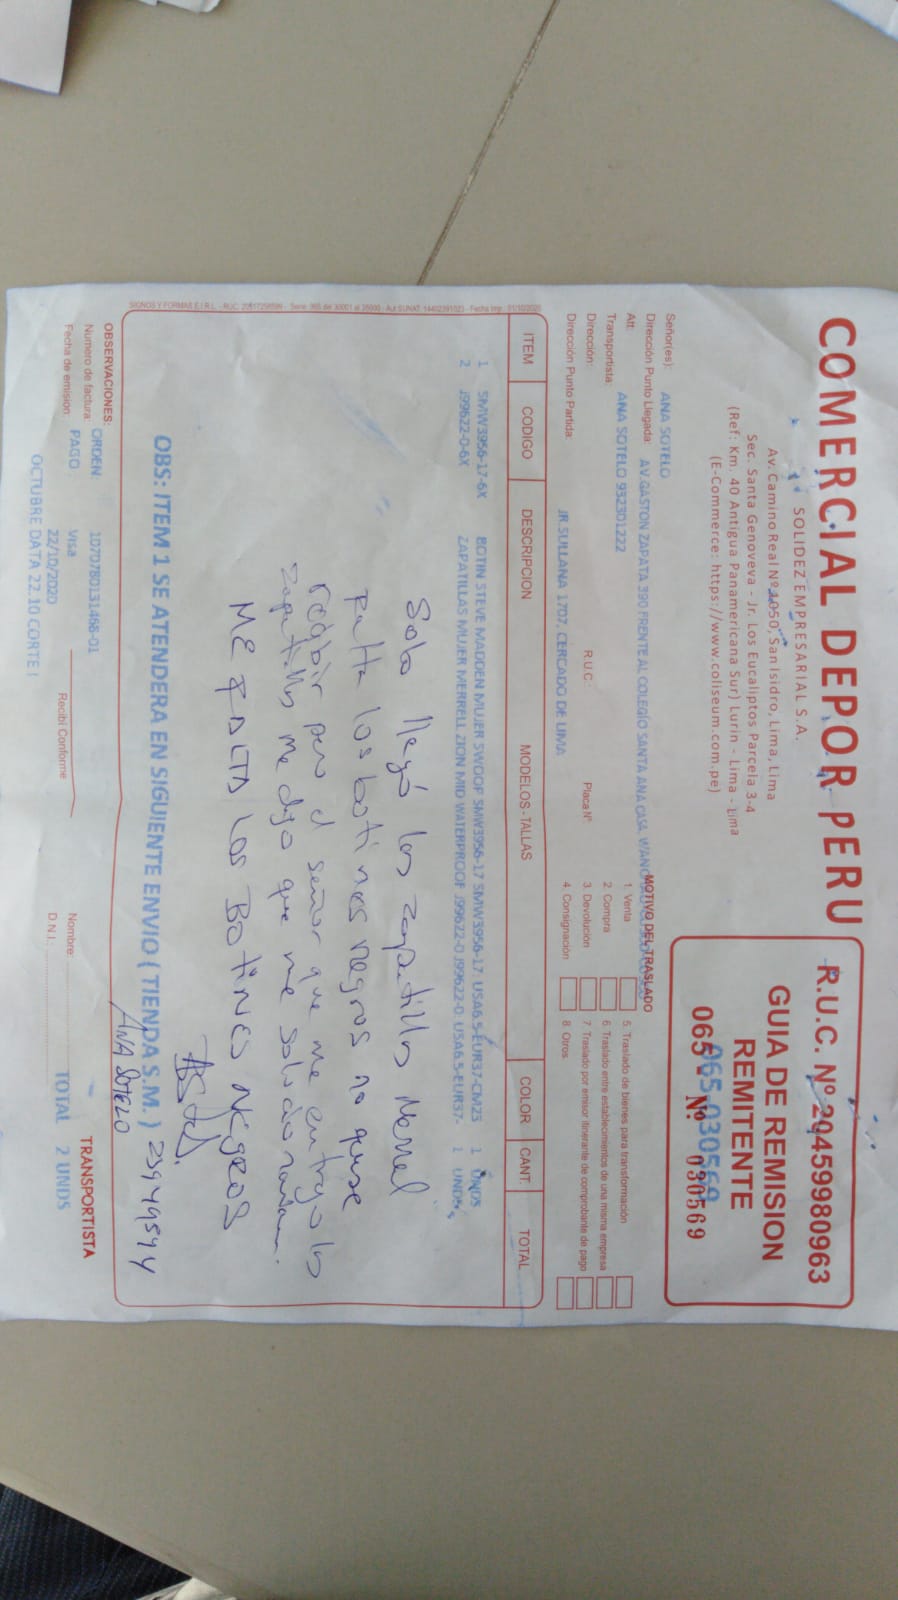 COMERCIAL DEPOR PERU
SOLIDEZ EMPRESARIAL S.A.
Av. Camino Real Nº 1050, San Isidro, Lima, Lima
Sec. Santa Genoveva - Jr. Los Eucaliptos Parcela 3-4
(Ref: Km. 40 Antigua Panamericana Sur) Lurin - Lima - Lima
(E-Commerce: https://www.coliseum.com.pe)
R.U.C. Nº 20459980963
GUIA DE REMISION
REMITENTE
065-030569
065- Nº 030569
Señor(es): ANA SOTELO
Dirección Punto Llegada: AV.GASTON ZAPATA 390 FRENTE AL COLEGIO SANTA ANA CASA
Att:
Transportista: ANA SOTELO 932301222
Dirección: R.U.C.: Placa Nº
Dirección Punto Partida: JR.SULLANA 1707, CERCADO DE LIMA
MOTIVO DEL TRASLADO
1. Venta
2. Compra
3. Devolución
4. Consignación
5. Traslado de bienes para transformación
6. Traslado entre establecimientos de una misma empresa
7. Traslado por emisor itinerante de comprobante de pago
8. Otros
ITEM CODIGO DESCRIPCION MODELOS - TALLAS COLOR CANT. TOTAL
1 SMW3956-17-6X BOTIN STEVE MADDEN MUJER SWOOF SMW3956-17 SMW3956-17: USA6.5-EUR37-CM23 1 UNDS
2 J99622-0-6X ZAPATILLAS MUJER MERRELL ZION MID WATERPROOF J99622-0 J99622-0: USA6.5-EUR37- 1 UNDS
Solo llegó las zapatillas Merrel
falta los botines negros no quise
recibir pero el señor que me entrego las
zapatillas me dijo que me
ME FALTA LOS BOTINES NEGROS
ANA SOTELO 23949594
OBS: ITEM 1 SE ATENDERA EN SIGUIENTE ENVIO ( TIENDA S.M. )
OBSERVACIONES:
ORDEN: 1070780131466-01
Numero de factura:
PAGO Visa
Fecha de emision: 22/10/2020
OCTUBRE DATA 22.10 CORTE I
Recibí Conforme
TRANSPORTISTA
Nombre:
D.N.I.:
TOTAL 2 UNDS
SIGNOS Y FORMAS E.I.R.L. - RUC: